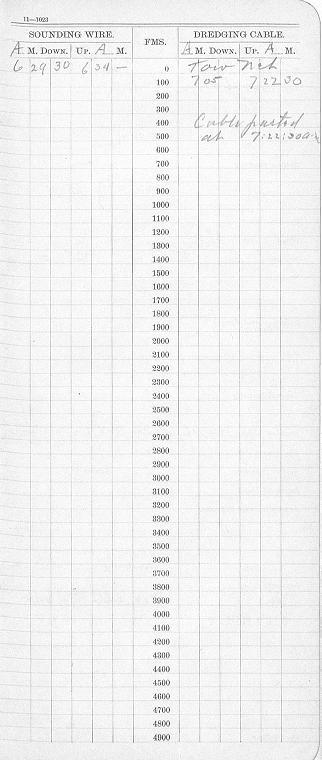 11—1023
SOUNDING WIRE. FMS. DREDGING CABLE.
A. M. DOWN. UP. A. M. A. M. DOWN. UP. A. M.
6 29 30 6 34 — 0 Tow Net
100 7 05 7 22 30
200
300
400 Cable parted
500 at 7:22:30 a.m
600
700
800
900
1000
1100
1200
1300
1400
1500
1600
1700
1800
1900
2000
2100
2200
2300
2400
2500
2600
2700
2800
2900
3000
3100
3200
3300
3400
3500
3600
3700
3800
3900
4000
4100
4200
4300
4400
4500
4600
4700
4800
4900